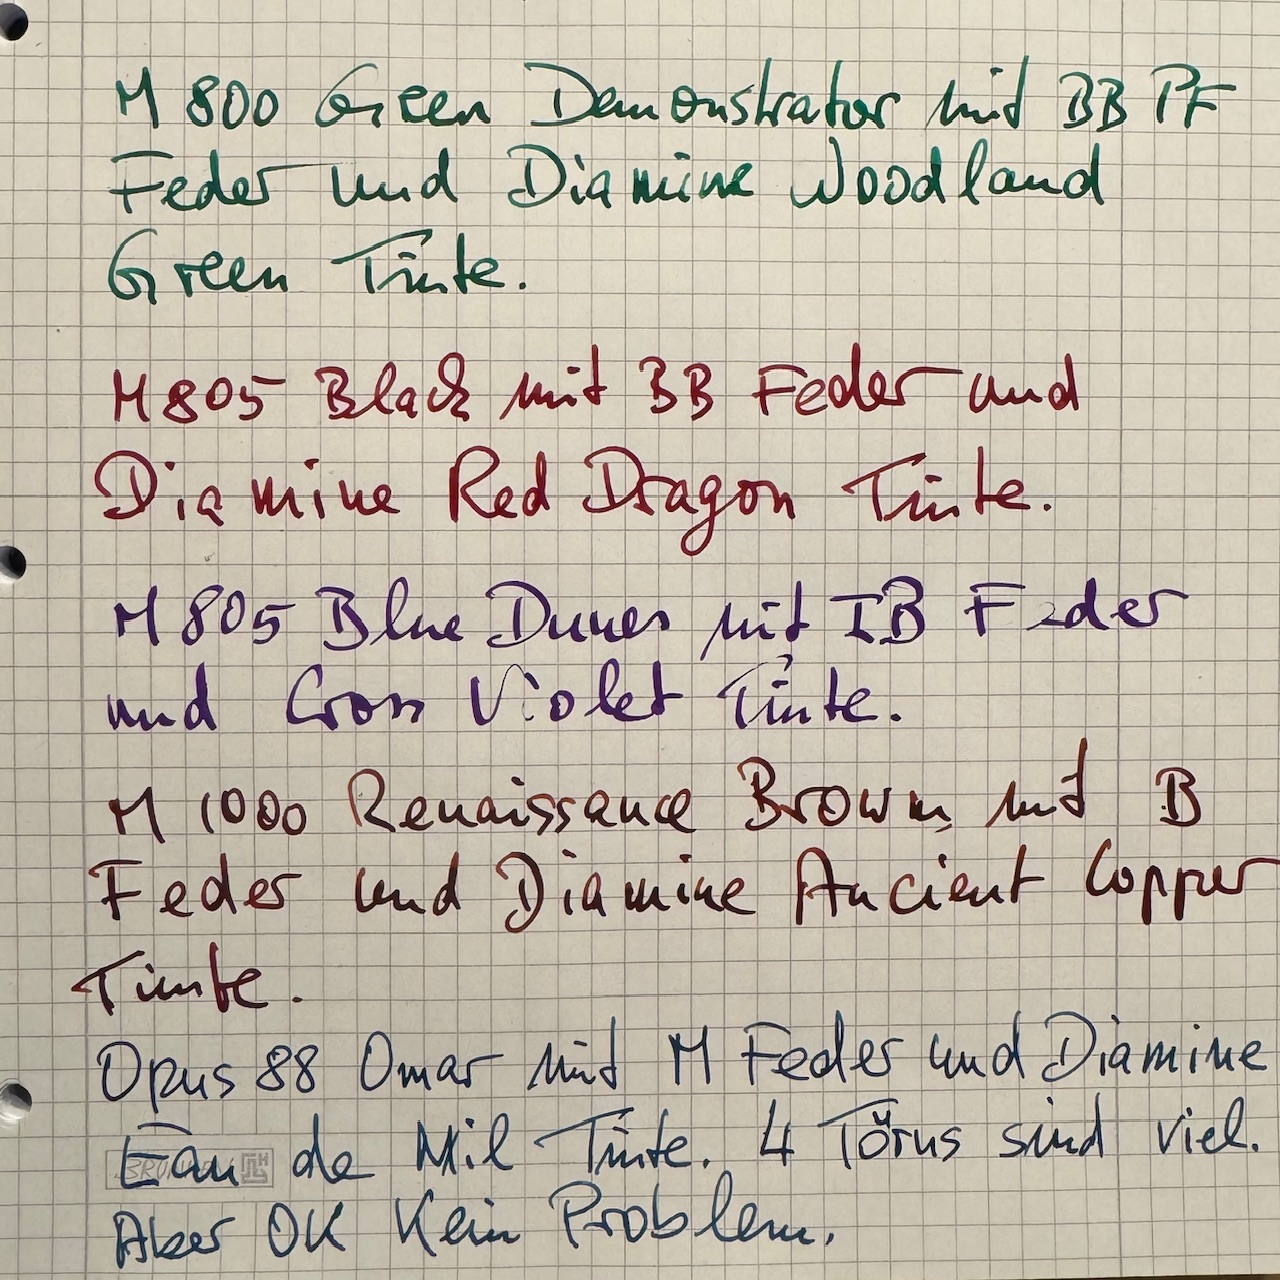 M 800 Green Demonstrator mit BB PF
Feder und Diamine Woodland
Green Tinte.
M805 Black mit BB Feder und
Diamine Red Dragon Tinte.
M 805 Blue Dunes mit IB Feder
und Cross Violet Tinte.
M 1000 Renaissance Brown mit B
Feder und Diamine Ancient Copper
Tinte.
Opus 88 Omar mit M Feder und Diamine
Eau de Mil Tinte. 4 Törus sind viel.
Aber OK Kein Problem.
BRUNNEN